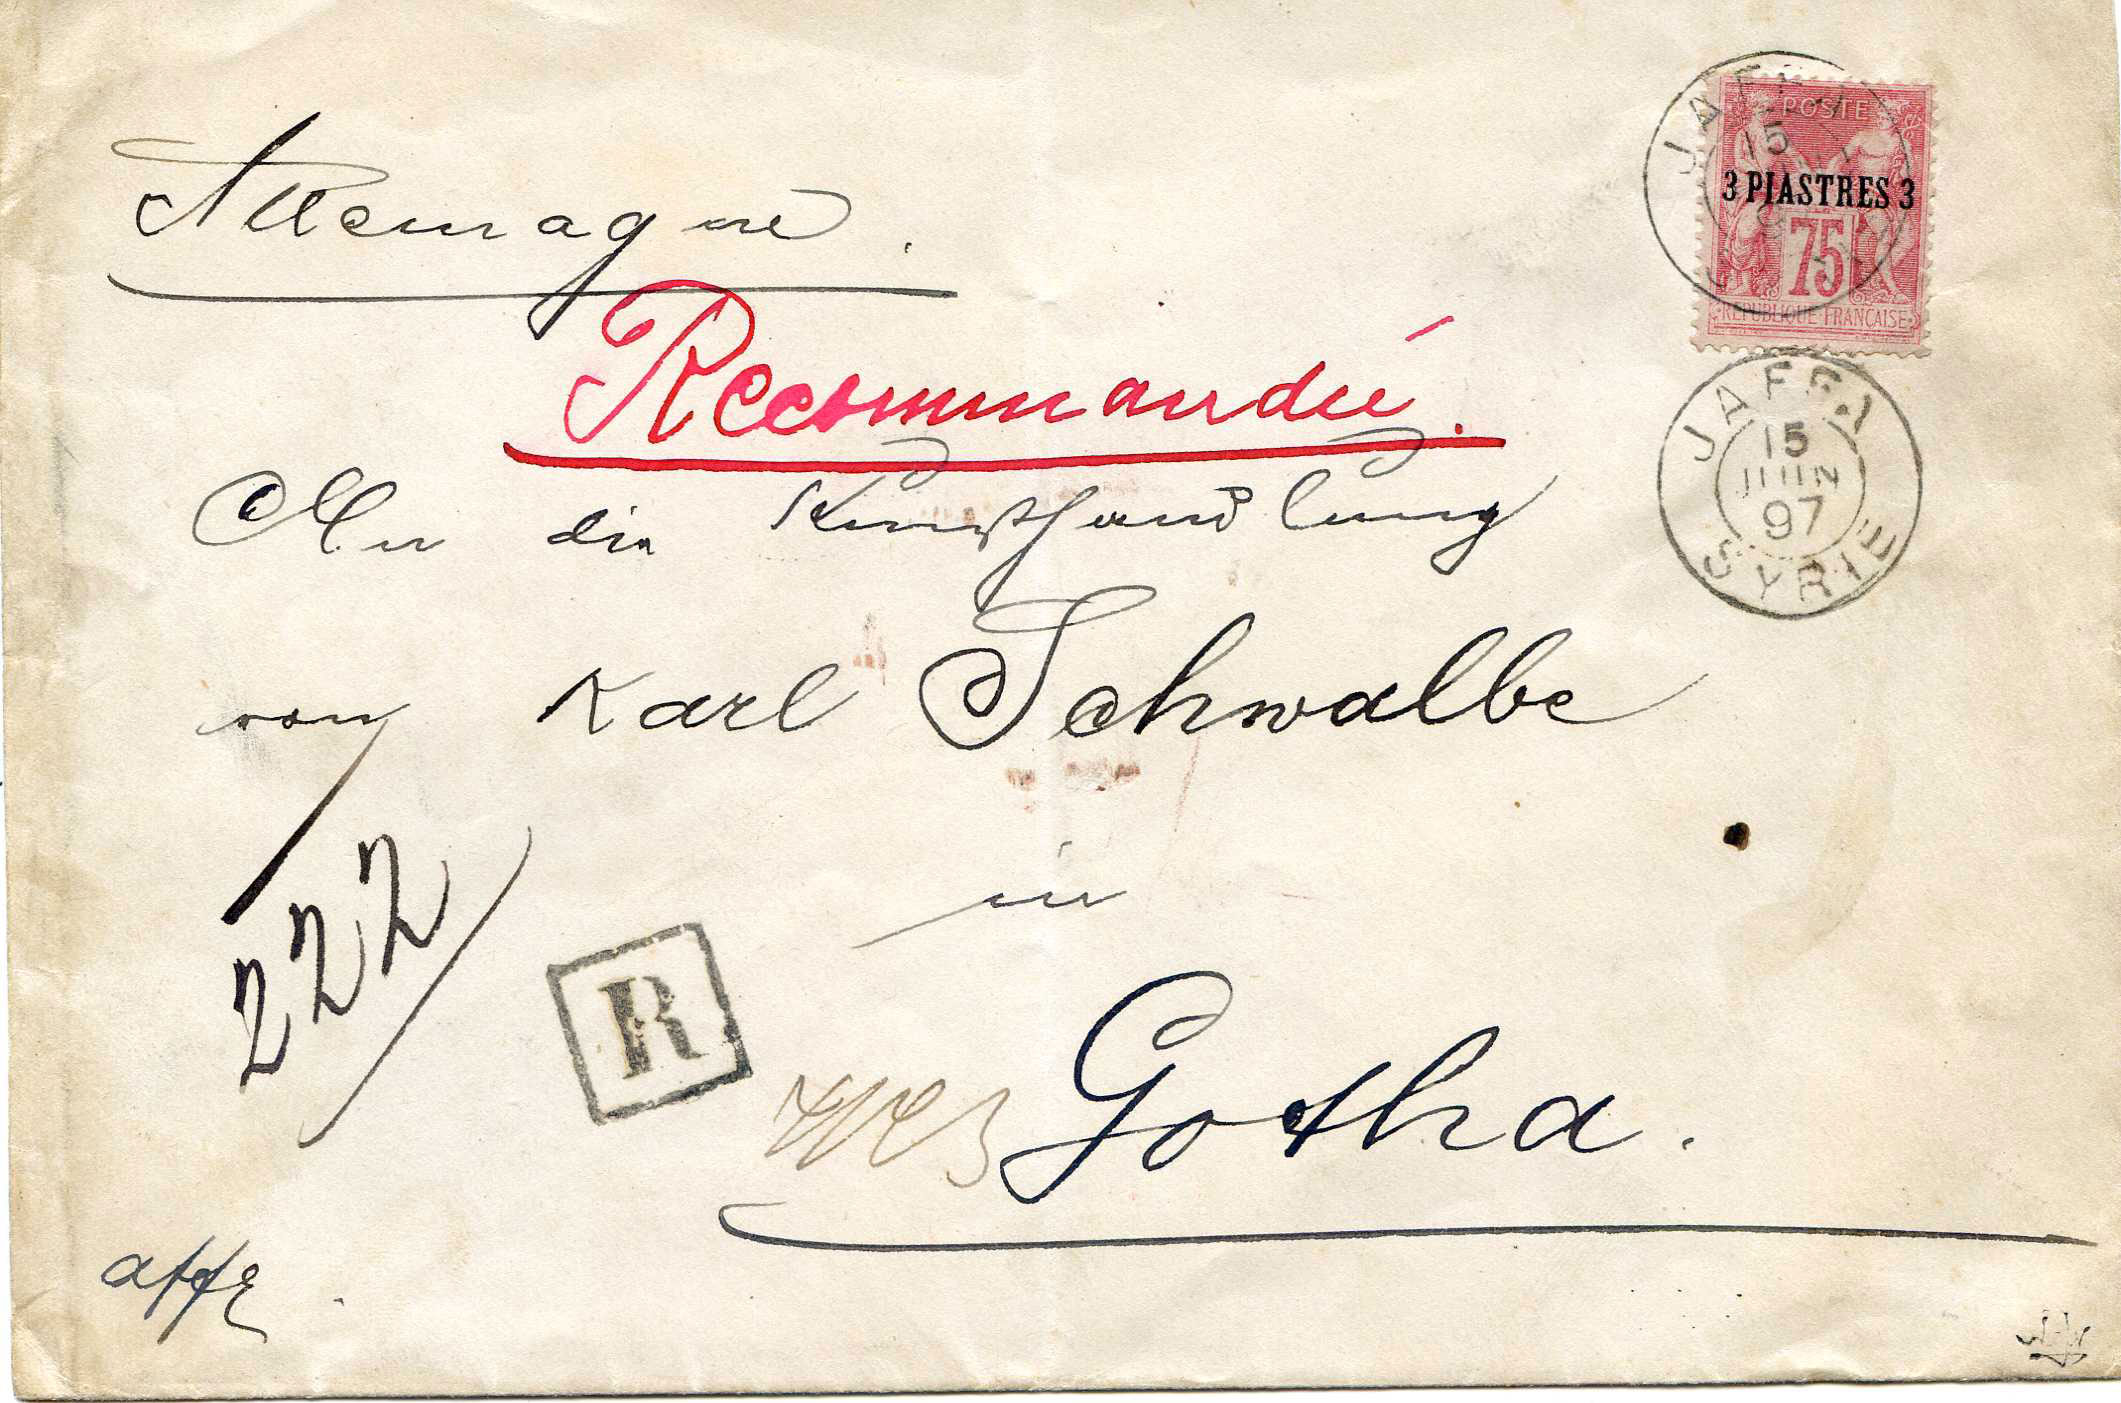 Allemagne.
POSTE
3 PIASTRES 3
75
REPUBLIQUE FRANÇAISE
JAFFA
15
Recommandée.
JAFFA
15
JUIN
97
SYRIE
An die Kunsthandlung
von Karl Schwalbe
in
222
R
Gotha.